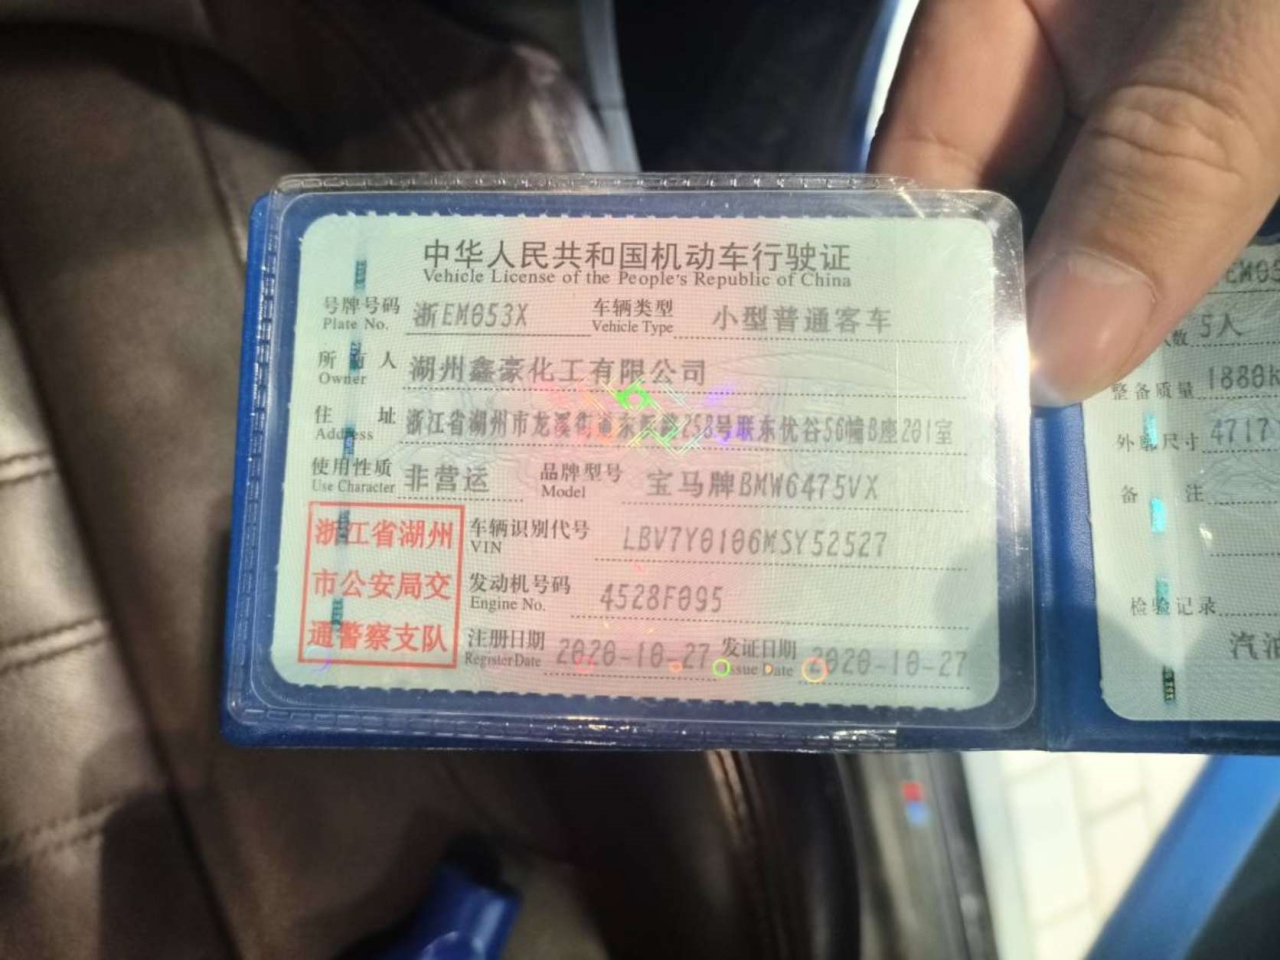 中华人民共和国机动车行驶证
Vehicle License of the People's Republic of China
号牌号码 浙EM053X 车辆类型 小型普通客车
Plate No. Vehicle Type
所有人 湖州鑫豪化工有限公司
Owner
住址 浙江省湖州市龙溪街道东 路258号联东优谷56幢B座201室
Address
使用性质 非营运 品牌型号 宝马牌BMW6475VX
Use Character Model
浙江省湖州
市公安局交
通警察支队
车辆识别代号 LBV7Y0106MSY52527
VIN
发动机号码 4528F095
Engine No.
注册日期 2020-10-27 发证日期 2020-10-27
Register Date Issue Date
EM05
数 5人
整备质量 1880k
外廓尺寸 4717
备注
检验记录
汽油